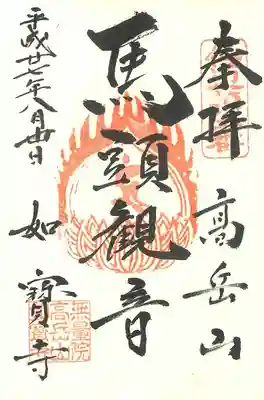 奉拝
高岳山
馬頭觀音
平成廿七年八月廿日
如寶寺
無量院